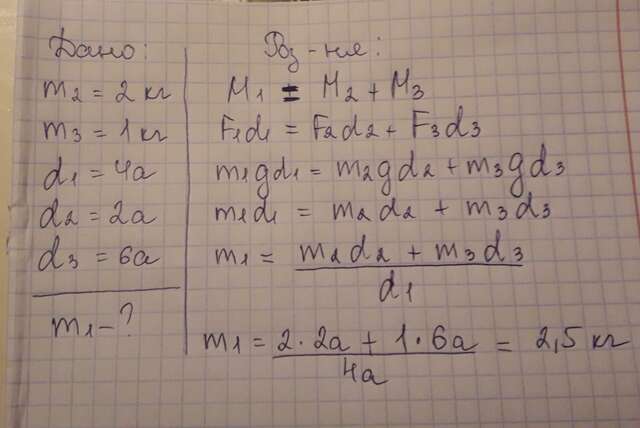 Дано:
m2 = 2 кг
m3 = 1 кг
d1 = 4a
d2 = 2a
d3 = 6a
m1 - ?
Роз-ня:
M1 = M2 + M3
F1d1 = F2d2 + F3d3
m1gd1 = m2gd2 + m3gd3
m1d1 = m2d2 + m3d3
m1 = (m2d2 + m3d3) / d1
m1 = (2·2a + 1·6a) / 4a = 2,5 кг